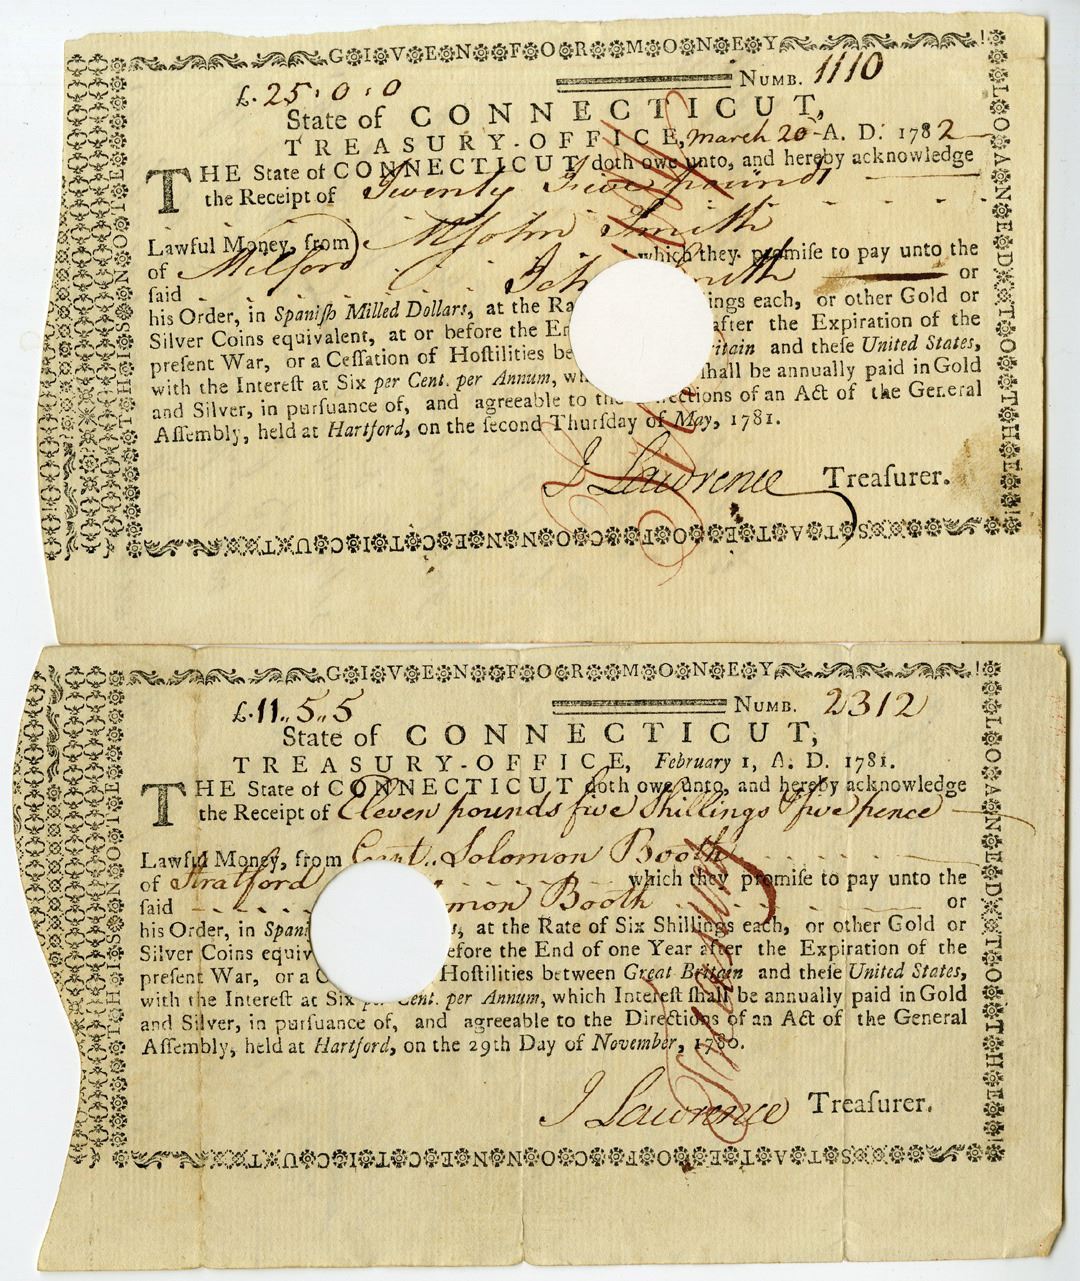 GIVEN FOR MONEY
£. 25 . 0 . 0 NUMB. 1110
State of CONNECTICUT,
TREASURY-OFFICE, march 20 A. D. 1782
THE State of CONNECTICUT doth owe unto, and hereby acknowledge
the Receipt of Twenty Five pounds
Lawful Money, from Mr John Smith
of Milford which they promise to pay unto the
said Smith or
his Order, in Spaniſh Milled Dollars, at the or other Gold or
Silver Coins equivalent, at or before the after the Expiration of the
preſent War, or a Ceſſation of Hoſtilities and theſe United States,
with the Intereſt at Six per Cent. per Annum, ſhall be annually paid in Gold
and Silver, in purſuance of, and agreeable to of an Act of the General
Aſſembly, held at Hartford, on the ſecond Thurſday of May, 1781.
J Lawrence Treaſurer.
STATE OF CONNECTICUT
LOANED TO THE
ON THIS NOTE
GIVEN FOR MONEY
£. 11 .. 5 .. 5 NUMB. 2312
State of CONNECTICUT,
TREASURY-OFFICE, February 1, A. D. 1781.
THE State of CONNECTICUT doth owe unto, and hereby acknowledge
the Receipt of Eleven pounds five Shillings & five pence
Lawful Money, from Capt. Solomon Booth
of Stratford which they promiſe to pay unto the
said Booth or
his Order, in at the Rate of Six Shillings each, or other Gold or
Silver Coins the End of one Year after the Expiration of the
preſent War, or a Hoſtilities between Great Britain and theſe United States,
with the Intereſt at Six per Cent. per Annum, which Intereſt ſhall be annually paid in Gold
and Silver, in purſuance of, and agreeable to the Directions of an Act of the General
Aſſembly, held at Hartford, on the 29th Day of November, 1780.
J Lawrence Treaſurer.
STATE OF CONNECTICUT
LOANED TO THE
ON THIS NOTE